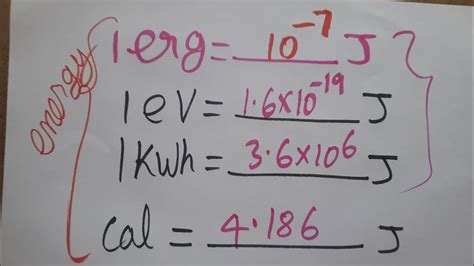 energy
1 erg = 10⁻⁷ J
1 eV = 1.6×10⁻¹⁹ J
1 Kwh = 3.6×10⁶ J
cal = 4.186 J